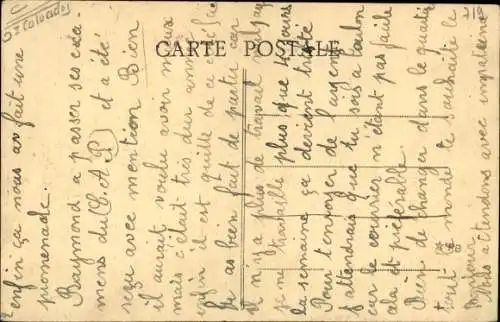 Calvados
CARTE POSTALE
enfin ça nous av fait une
promenade.
Raymond a passer ses exa-
mens du (C.A.P) et a été
reçu avec mention Bien
il aurait voulu avoir mieux
mais c'était très dur année
enfin il est quille de ce
tu as bien fait de partir car
il n'y a plus de travail
je ne travaille plus que 4 jours
la semaine ça devient triste
Pour t'envoyer de l'argent
j'attendrais que tu sois a toulon
car le courrier n'étant pas facile
cela est préférable.
Rien de changer dans le quartier
tout le monde te souhaite le
bonjour
Nous t'attendons avec impatience